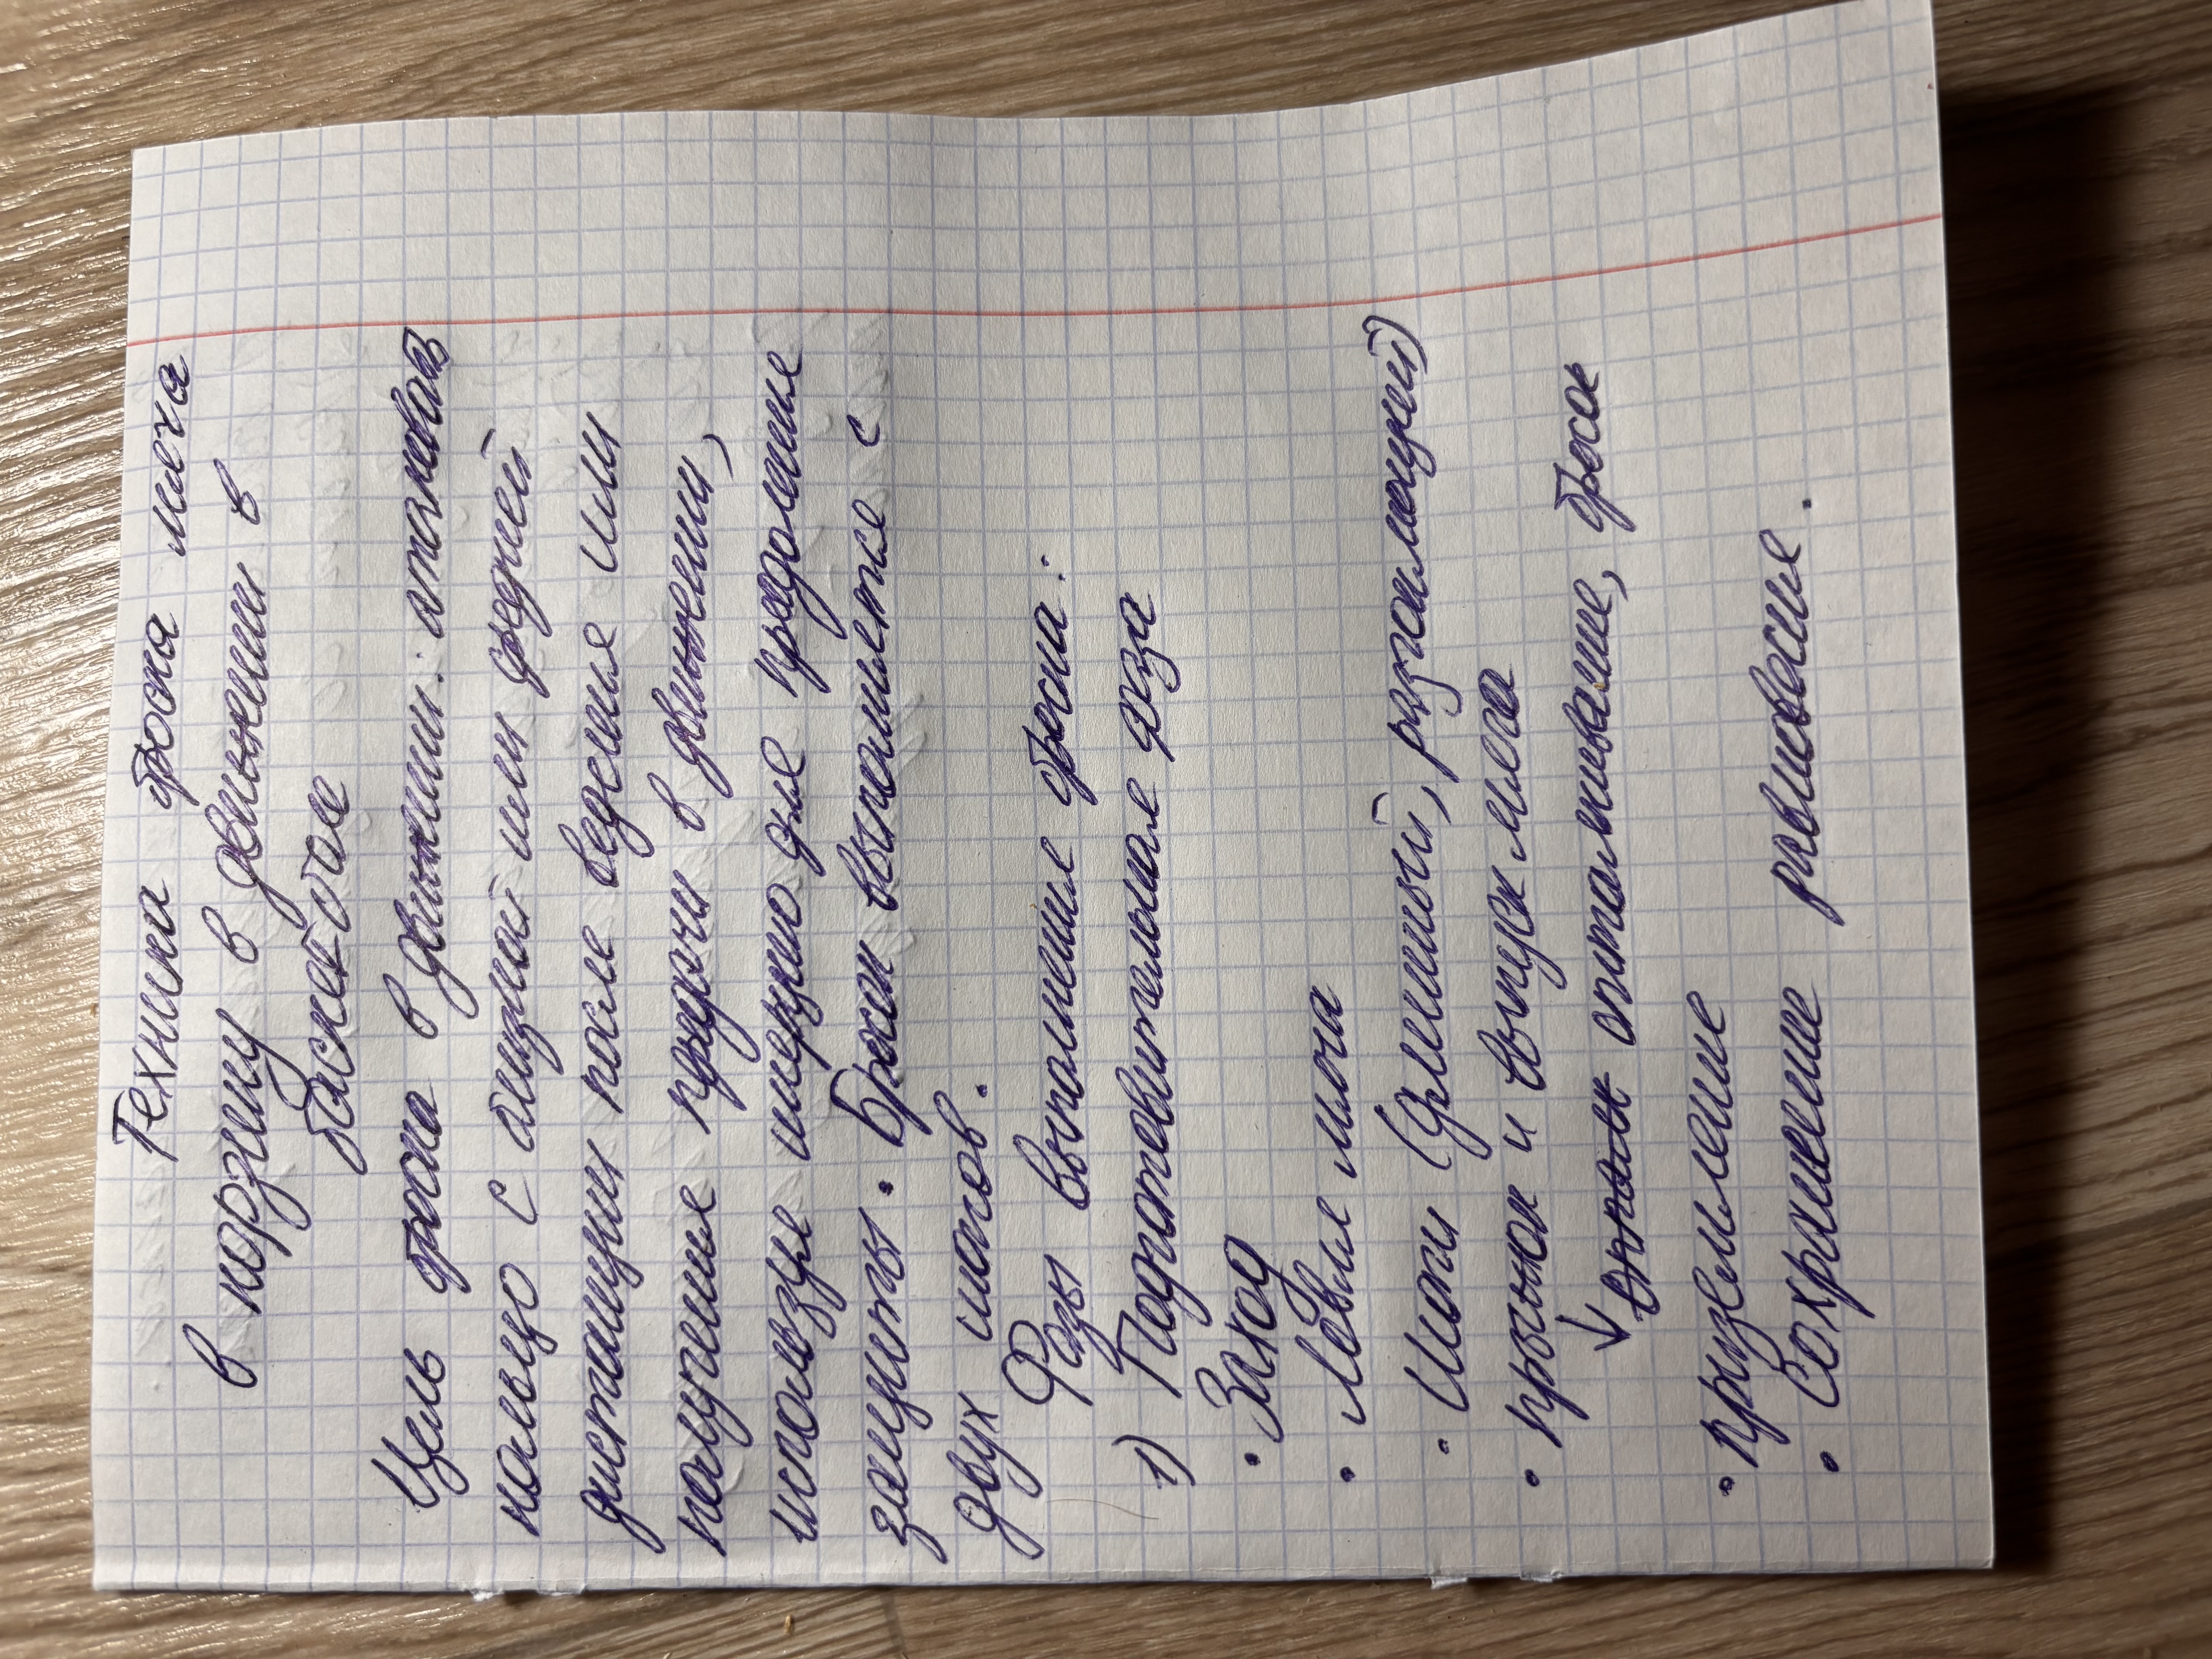 Техника броска мяча
в корзину в движении в
баскетболе
Цель броска в движении: атаковать
кольцо с ближней или средней
дистанции после ведения или
получение передачи в движении,
используя инерцию для преодоление
защиты. Бросок выполняется с
двух шагов.
Фазы выполнение броска:
1) Подготовительная фаза
• Заход
• Ловля мяча
• Шаги (длинный, разгоняющий)
• прыжок и выпуск мяча
↓ отталкивание, бросок
• приземление
• Сохранение равновесие.